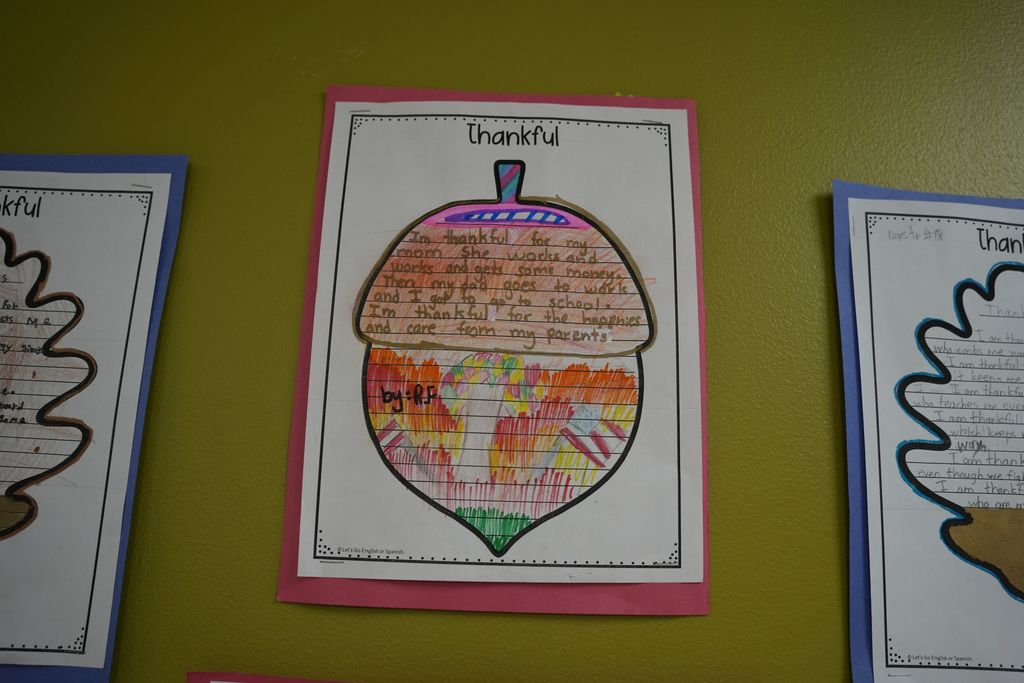 Thankful
Im thankful for my
mom She works and
works and gets some money.
Then my dad goes to work
and I got to go to school!
Im thankful for the happenies
and care from my parents
by: R.F
© Let's Go English or Spanish.
kful
for
Me
Thank
I am than
I am thankful
it keeps me
I am thankfu
who teaches me eve
I am thankful
which keeps
way
I am thank
even though we fig
I am thankf
who are m
© Let's Go English or Spanish.